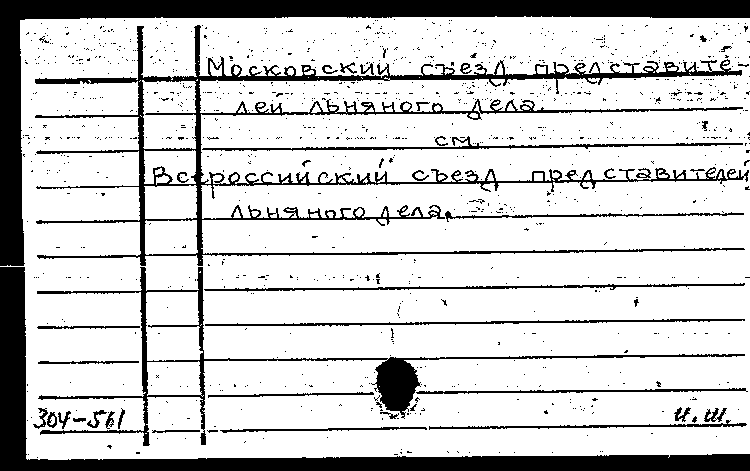 Московский съезд представите-
лей льняного дела.
см.
Всероссийский съезд представителей
льняного дела.
304-561 И.Ш.